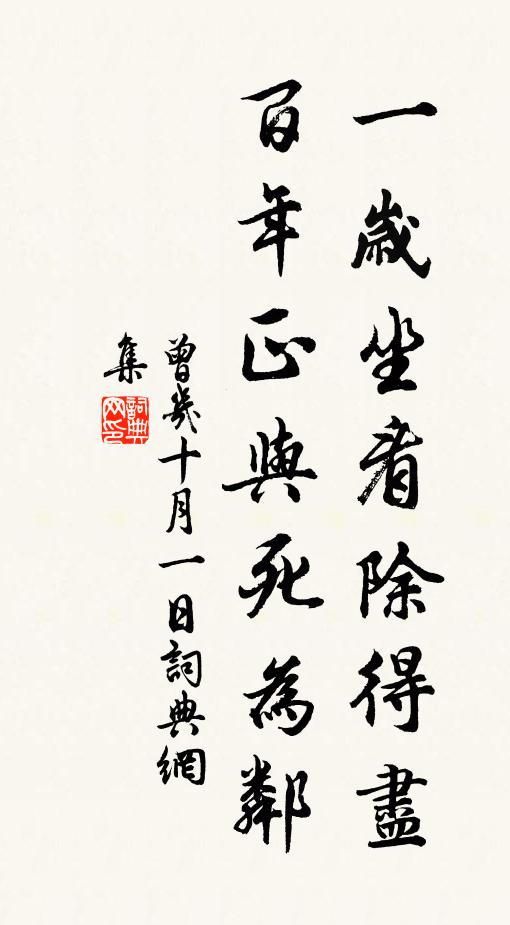 一歲坐看除得盡
百年正與死為鄰
曾幾十月一日詞典網
集
詞典
网印